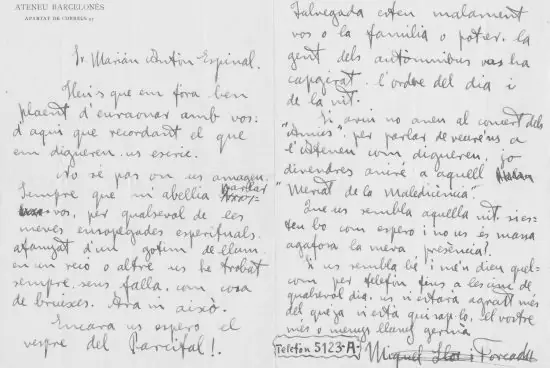 ATENEU BARCELONÈS
APARTAT DE CORREUS 27
Sr. Marián Antón Espinal.
Heus que em fora ben
plaent d'enraonar amb vos:
d'aqui que recordant el que
em digueren us escric.
No sé pas on us amagen.
Sempre que m'abellia parlar
vos, per qualsevol de les
meves ensopegades espirituals,
afanyat d'un gotim de llum,
en un recó o altre us he trobat
sempre, sens falla, com cosa
de bruixes. Ara ni això.
Encara us espero el
vespre del Parcifal!.
Salvegada esten malament
vos o la familia o potser la
gent dels autòmnibus us ha
capgirat l'ordre del dia i
de la nit.
Si avui no aneu al concert dels
"Amics", per parlar de veure'ns a
l'Ateneu com digueren, jo
divendres aniré a aquell
"Mercat de la Maledicència".
Que us sembla aquella nit, si es-
teu bo com espero i no us és massa
agafora la meva presència!.
Si us sembla bé i me'n dieu quel-
com per telefon fins a les una de
qualsevol dia, us n'estara agraït més
del que ja n'està quisap-lo, el vostre
més o menys llaneg germà
Telefon 5123-A-
Miquel Llor i Forcada